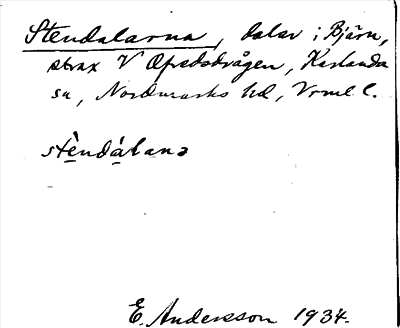 Stendalarna, dalar i Bjärn,
strax V Ofredsvågen, Karlanda
sn, Nordmarks hd, Vrml l.
stèndálana
E. Andersson 1934.